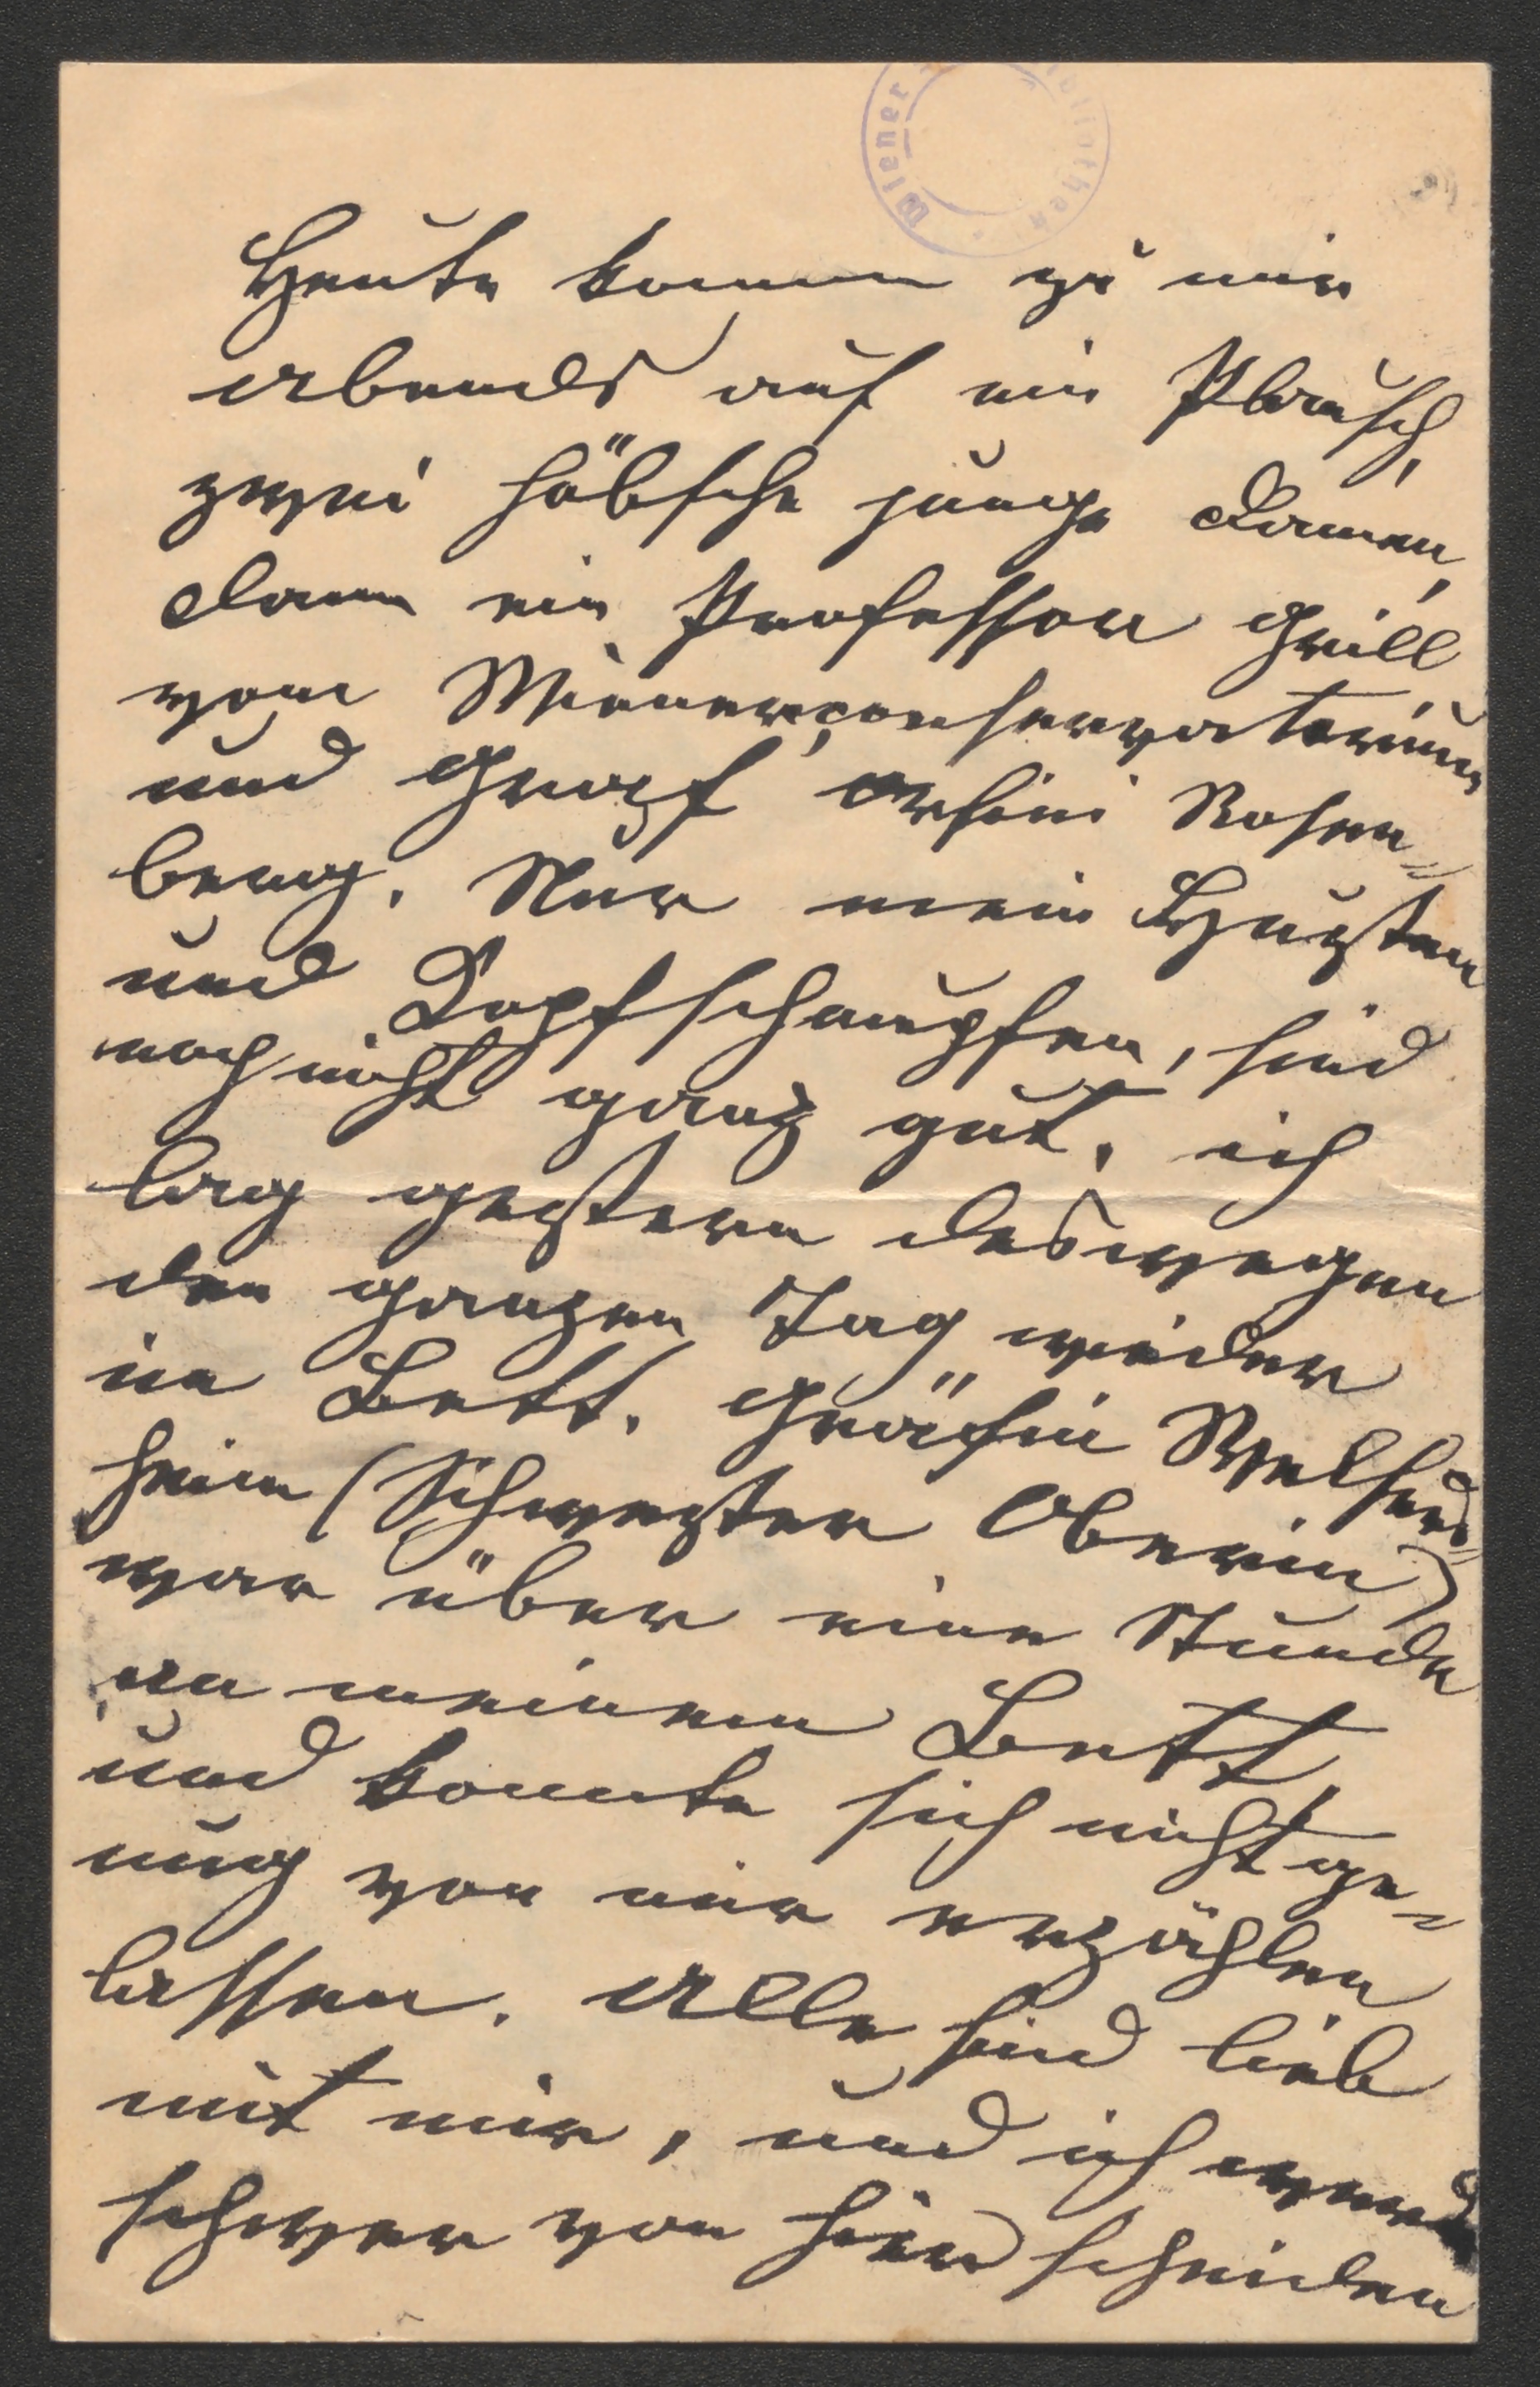 Wiener
Heute kommen zu mir
abends auf ein Plausch,
zwei hübsche junge Damen,
dann ein Professor Grill
vom Wienerconservatorium
und Graf Orsini Rosen=
berg. Nur mein Husten
und Kopfschnupfen, sind
noch nicht ganz gut, ich
lag gestern deswegen
den ganzen Tag wieder
im Bett. Gräfin Welsers=
heim (Schwester Oberin)
war über eine Stunde
an meinem Bett,
und konnte sich nicht ge=
nug von mir erzählen
lassen. Alle sind lieb
mit mir, und ich werde
schwer von hier scheiden